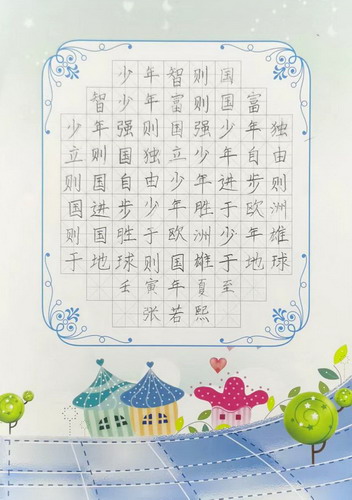 少年智则国
智少年富则国富
少年强则国强少年独
立则国独立少年自由
则国自由少年进步则
国进步少年胜于欧洲
则国胜于欧洲少年雄
于地球则国雄于地球
壬寅年夏至
张若熙